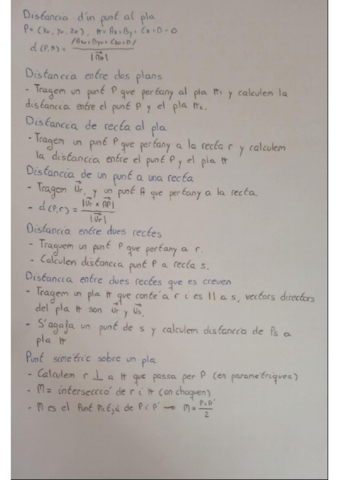 Distancia d'un punt al pla
P= (x₀, y₀, z₀), π = Ax+By+Cz+D=0
d (P,π) = |Ax₀+By₀+Cz₀+D| / |n⃗π|
Distancia entre dos plans
- Tragem un punt P que pertany al pla π₁ y calculem la
distancia entre el punt P y el pla π₂.
Distancia de recta al pla
- Tragem un punt P que pertany a la recta r y calculem
la distancia entre el punt P y el pla π
Distancia de un punt a una recta
- Tragem U⃗r y un punt A que pertany a la recta.
- d (P,r) = |U⃗r × A⃗P| / |U⃗r|
Distancia entre dues rectes
- Traguem un punt P que pertany a r.
- Calculem distancia punt P a recta s.
Distancia entre dues rectes que es creven
- Tragem un pla π que conté a r i es || a s, vectors directors
del pla π son U⃗r y U⃗s.
- S'agafa un punt de s y calculem distancia de Ps a
pla π
Punt simetric sobre un pla
- Calculem r ⊥ a π que passa per P (en parametriques)
- M = intersecció de r i π (on choquen)
- M es el punt mitjà de P i P' → M = P+P' / 2